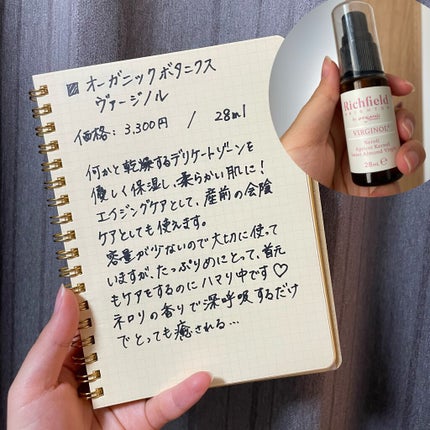 オーガニックボタニクス
ヴァージノル
価格：3,300円 / 28ml
何かと乾燥するデリケートゾーンを
優しく保湿し、柔らかい肌に！
エイジングケアとして、産前の会陰
ケアとしても使えます。
容量が少ないので大切に使って
いますが、たっぷりめにとって、首元
もケアをするのにハマり中です♡
ネロリの香りで深呼吸するだけ
でとっても癒される…
Richfield
VIRGINOL
Neroli
Apricot Kernel
Sweet Almond Virgin
28ml